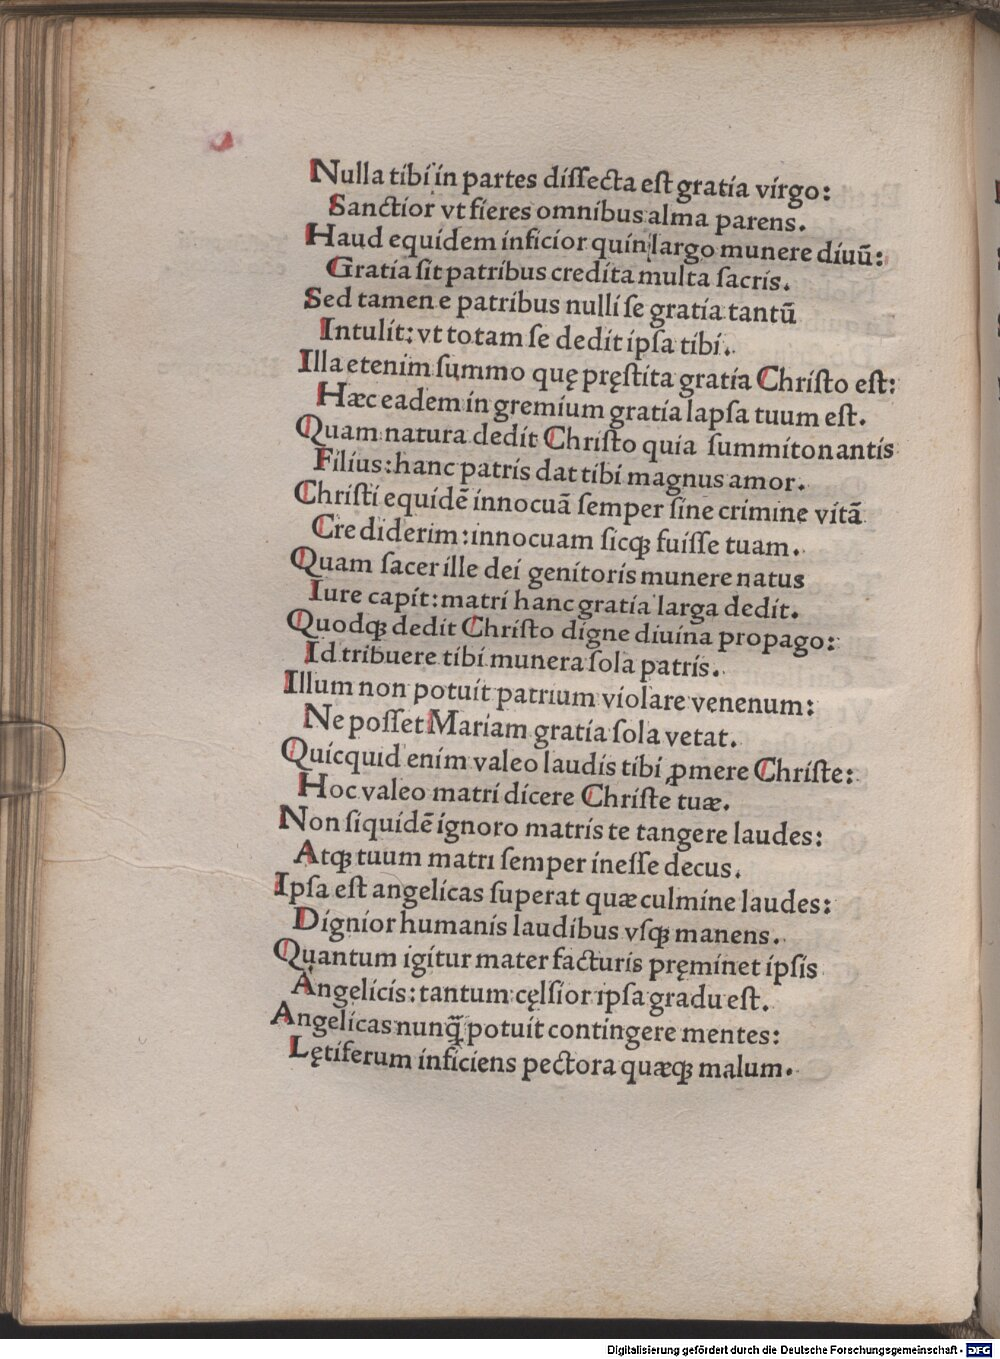 Nulla tibi in partes diſſecta eſt gratia virgo:
Sanctior vt fieres omnibus alma parens.
Haud equidem inficior quin largo munere diuū:
Gratia ſit patribus credita multa ſacris.
Sed tamen e patribus nulli ſe gratia tantū
Intulit: vt totam ſe dedit ipſa tibi.
Illa etenim ſummo quę pręſtita gratia Chriſto eſt:
Hæc eadem in gremium gratia lapſa tuum eſt.
Quam natura dedit Chriſto quia ſummitonantis
Filius: hanc patris dat tibi magnus amor.
Chriſti equidē innocuā ſemper ſine crimine vitā
Crediderim: innocuam ſicꝗ fuiſſe tuam.
Quam ſacer ille dei genitoris munere natus
Iure capit: matri hanc gratia larga dedit.
Quodꝗ dedit Chriſto digne diuina propago:
Id tribuere tibi munera ſola patris.
Illum non potuit patrium violare venenum:
Ne poſſet Mariam gratia ſola vetat.
Quicquid enim valeo laudis tibi ꝓmere Chriſte:
Hoc valeo matri dicere Chriſte tuæ.
Non ſiquidē ignoro matris te tangere laudes:
Atꝗ tuum matri ſemper ineſſe decus.
Ipſa eſt angelicas ſuperat quæ culmine laudes:
Dignior humanis laudibus vſꝗ manens.
Quantum igitur mater facturis pręminet ipſis
Angelicis: tantum cęlſior ipſa gradu eſt.
Angelicas nunq̄ potuit contingere mentes:
Lętiferum inficiens pectora quæꝗ malum.
Digitalisierung gefördert durch die Deutsche Forschungsgemeinschaft - DFG